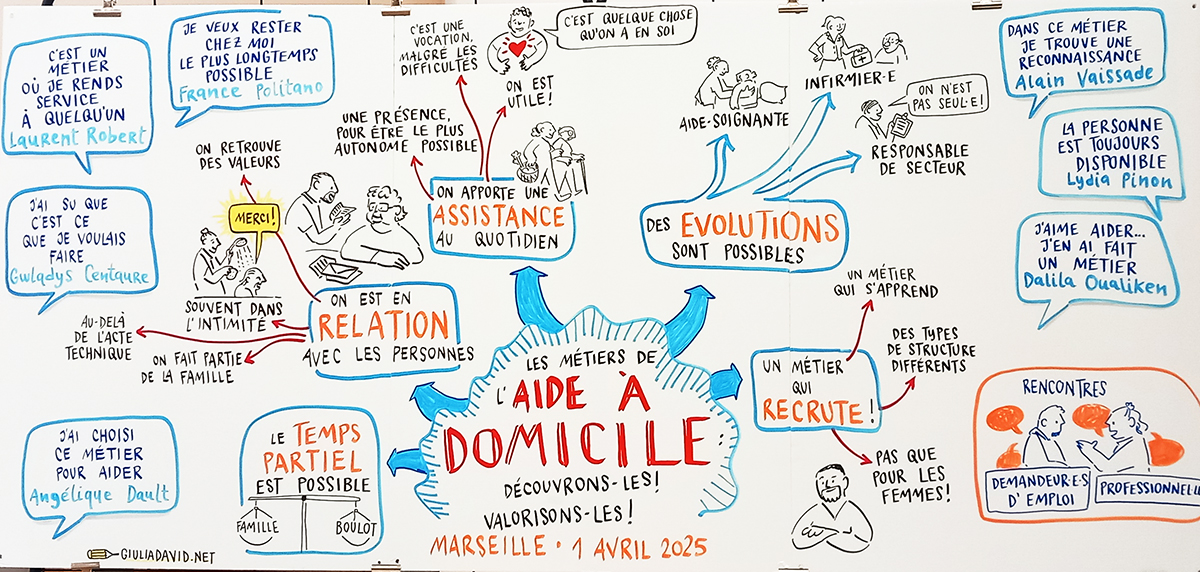 C'EST UN
MÉTIER
OÙ JE RENDS
SERVICE
À QUELQU'UN
Laurent Robert
JE VEUX RESTER
CHEZ MOI
LE PLUS LONGTEMPS
POSSIBLE
France Politano
J'AI SU QUE
C'EST CE
QUE JE VOULAIS
FAIRE
Gwladys Centaure
J'AI CHOISI
CE MÉTIER
POUR AIDER
Angélique Dault
GIULIADAVID.NET
ON RETROUVE
DES VALEURS
MERCI!
SOUVENT DANS
L'INTIMITÉ
AU-DELÀ
DE L'ACTE
TECHNIQUE
ON FAIT PARTIE
DE LA FAMILLE
ON EST EN
RELATION
AVEC LES PERSONNES
LE TEMPS
PARTIEL
EST POSSIBLE
FAMILLE
BOULOT
C'EST UNE
VOCATION,
MALGRÉ LES
DIFFICULTÉS
C'EST QUELQUE CHOSE
QU'ON A EN SOI
ON EST
UTILE!
UNE PRÉSENCE,
POUR ÊTRE LE PLUS
AUTONOME POSSIBLE
ON APPORTE UNE
ASSISTANCE
AU QUOTIDIEN
LES MÉTIERS DE
L'AIDE À
DOMICILE:
DÉCOUVRONS-LES!
VALORISONS-LES!
MARSEILLE • 1 AVRIL 2025
AIDE-SOIGNANTE
INFIRMIER·E
ON N'EST
PAS SEUL·E!
RESPONSABLE
DE SECTEUR
DES EVOLUTIONS
SONT POSSIBLES
UN MÉTIER
QUI S'APPREND
DES TYPES
DE STRUCTURE
DIFFÉRENTS
UN MÉTIER
QUI
RECRUTE!
PAS QUE
POUR LES
FEMMES!
DANS CE MÉTIER
JE TROUVE UNE
RECONNAISSANCE
Alain Vaissade
LA PERSONNE
EST TOUJOURS
DISPONIBLE
Lydia Pinon
J'AIME AIDER...
J'EN AI FAIT
UN MÉTIER
Dalila Oualiken
RENCONTRES
DEMANDEUR·E·S
D'EMPLOI
PROFESSIONNEL